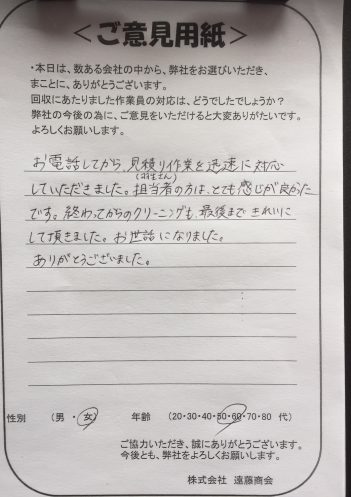 ＜ご意見用紙＞
・本日は、数ある会社の中から、弊社をお選びいただき、
まことに、ありがとうございます。
回収にあたりました作業員の対応は、どうでしたでしょうか？
弊社の今後の為に、ご意見をいただけると大変ありがたいです。
よろしくお願いします。
お電話してから、見積り作業を迅速に対応
していただきました。担当者の方は、とても感じが良かった
です。終わってからのクリーニングも、最後まできれいに
して頂きました。お世話になりました。
ありがとうございました。
性別 （男 ・ 女） 年齢 （20・30・40・50・60・70・80 代）
ご協力いただき、誠にありがとうございます。
今後とも、弊社をよろしくお願いします。
株式会社 遠藤商会